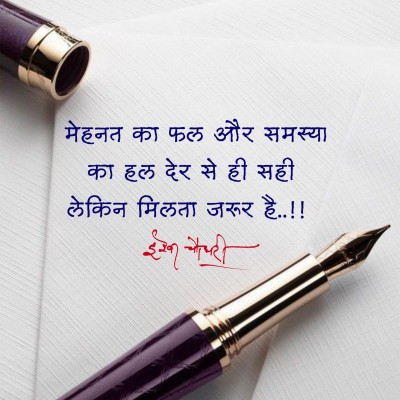 मेहनत का फल और समस्या
का हल देर से ही सही
लेकिन मिलता जरूर है..!!
चौधरी